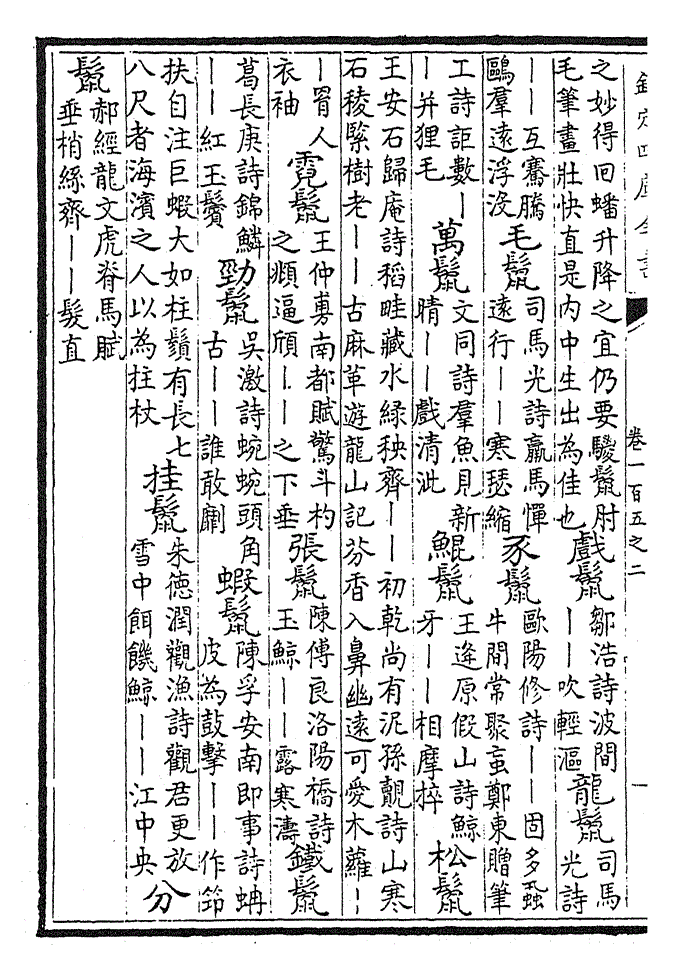 欽定四庫全書 卷一百五之二 一
之妙得回蟠升降之宜仍要騣鬛肘
毛筆畫壯快直是内中生出為佳也
戲鬛
鄒浩詩波間
——吹輕漚
龍鬛
司馬
光詩
——互騫騰
鷗羣遠浮没
毛鬛
司馬光詩羸馬憚
遠行——寒瑟縮
豕鬛
歐陽修詩——固多蝨
牛間常聚䖟鄭東贈筆
工詩詎數—
—并狸毛
萬鬛
文同詩羣魚見新
晴——戲清泚
鯤鬛
王逢原假山詩鯨
牙——相摩捽
松鬛
王安石歸庵詩稻畦藏水綠秧齊——初乾尚有泥孫覿詩山寒
石稜緊樹老——古麻革遊龍山記芬香入鼻幽遠可愛木蘿—
—罥人
衣袖
霓鬛
王仲旉南都賦驚斗杓
之頫逼頎——之下垂
張鬛
陳傅良洛陽橋詩
玉鯨——露寒濤
鐵鬛
葛長庚詩錦鱗
——紅玉鬢
勁鬛
吳激詩蜿蜿頭角
古——誰敢劘
蝦鬛
陳孚安南即事詩蚺
皮為鼓擊——作笻
扶自注巨蝦大如柱鬚有長七
八尺者海濱之人以為拄杖
挂鬛
朱徳潤觀漁詩觀君更放
雪中餌饑鯨——江中央
分
鬛
郝經龍文虎脊馬賦
垂梢絲齊——髮直